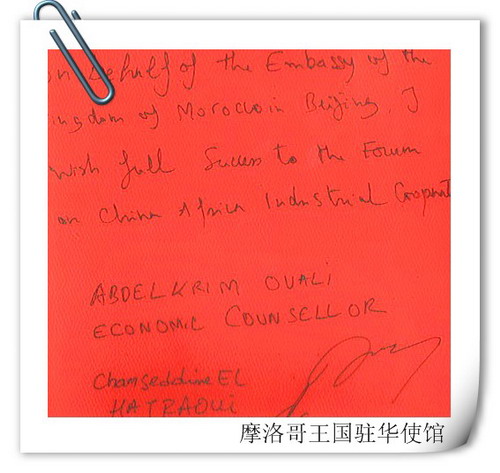 on Behalf of the Embassy of the
ingdom of Morocco in Beijing, I
wish full Success to the Forum
on China Africa Industrial Cooperat
ABDELKRIM OUALI
ECONOMIC COUNSELLOR
Chamseddine EL
HATRAOUI
摩洛哥王国驻华使馆